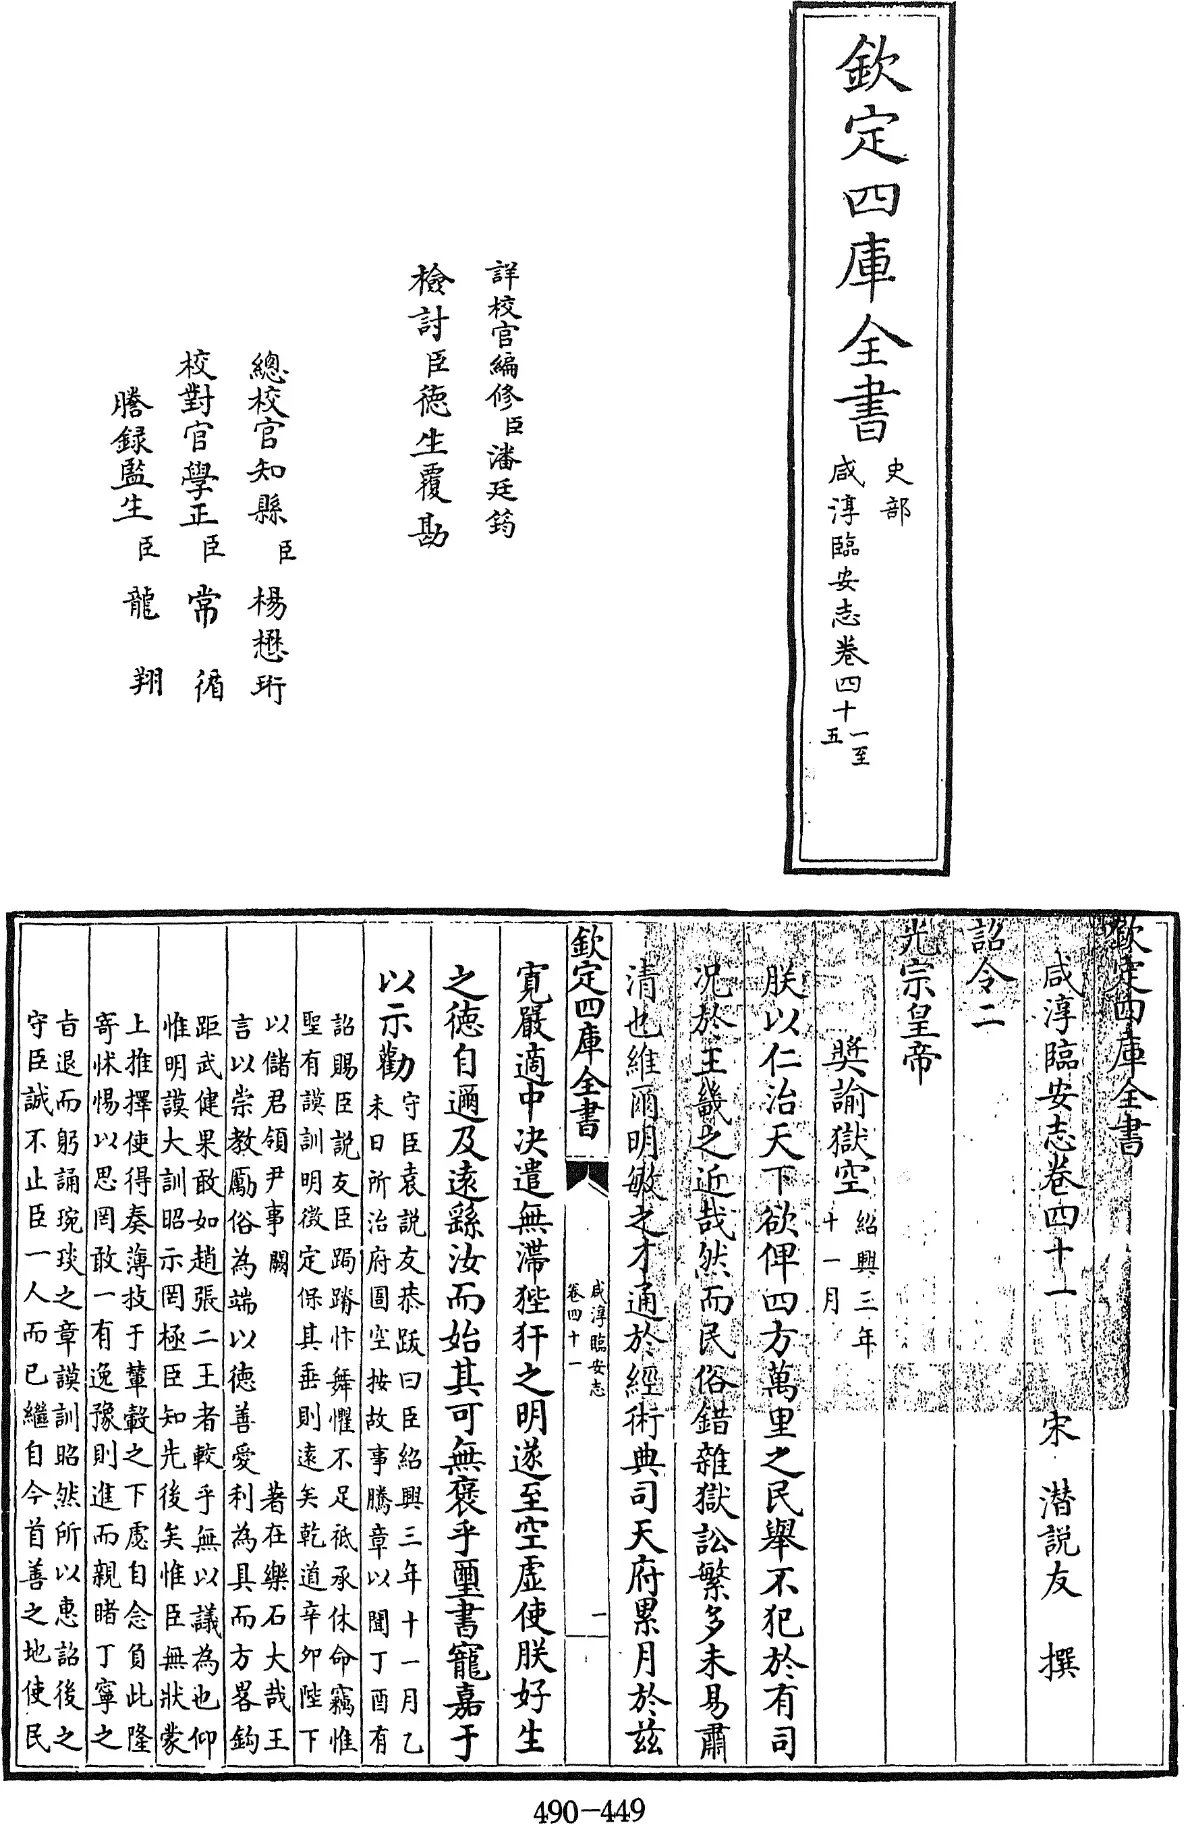 欽定四庫全書
史部
咸淳臨安志卷四十一至
五
詳校官編修臣潘廷筠
檢討臣德生覆勘
總校官知縣臣楊懋珩
校對官學正臣常循
謄録監生臣龍翔
欽定四庫全書
咸淳臨安志卷四十一
宋 潛説友 撰
詔令二
光宗皇帝
奬諭獄空
紹興三年
十一月
朕以仁治天下欲俾四方萬里之民舉不犯於有司
況於王畿之近哉然而民俗錯雜獄訟繁多未易肅
清也維爾明敏之才通於經術典司天府累月於兹
欽定四庫全書
咸淳臨安志
卷四十一
一
寛嚴適中決遣無滯狴犴之明遂至空虚使朕好生
之德自邇及遠繇汝而始其可無褒乎璽書寵嘉于
以示勸
守臣袁説友恭跋曰臣紹興三年十一月乙
未日所治府圄空按故事騰章以聞丁酉有
詔賜臣説友臣跼蹐忭舞懼不足祗承休命竊惟
聖有謨訓明徴定保其垂則遠矣乾道辛卯陛下
以儲君領尹事闕
著在樂石大哉王
言以崇教厲俗為端以德善愛利為具而方畧鈎
距武健果敢如趙張二王者較乎無以議為也仰
惟明謨大訓昭示罔極臣知先後矣惟臣無狀蒙
上推擇使得奏薄技于輦轂之下慮自念負此隆
寄怵惕以思罔敢一有逸豫則進而親睹丁寧之
旨退而躬誦琬琰之章謨訓昭然所以惠詔後之
守臣誠不止臣一人而已繼自今首善之地使民
490-449